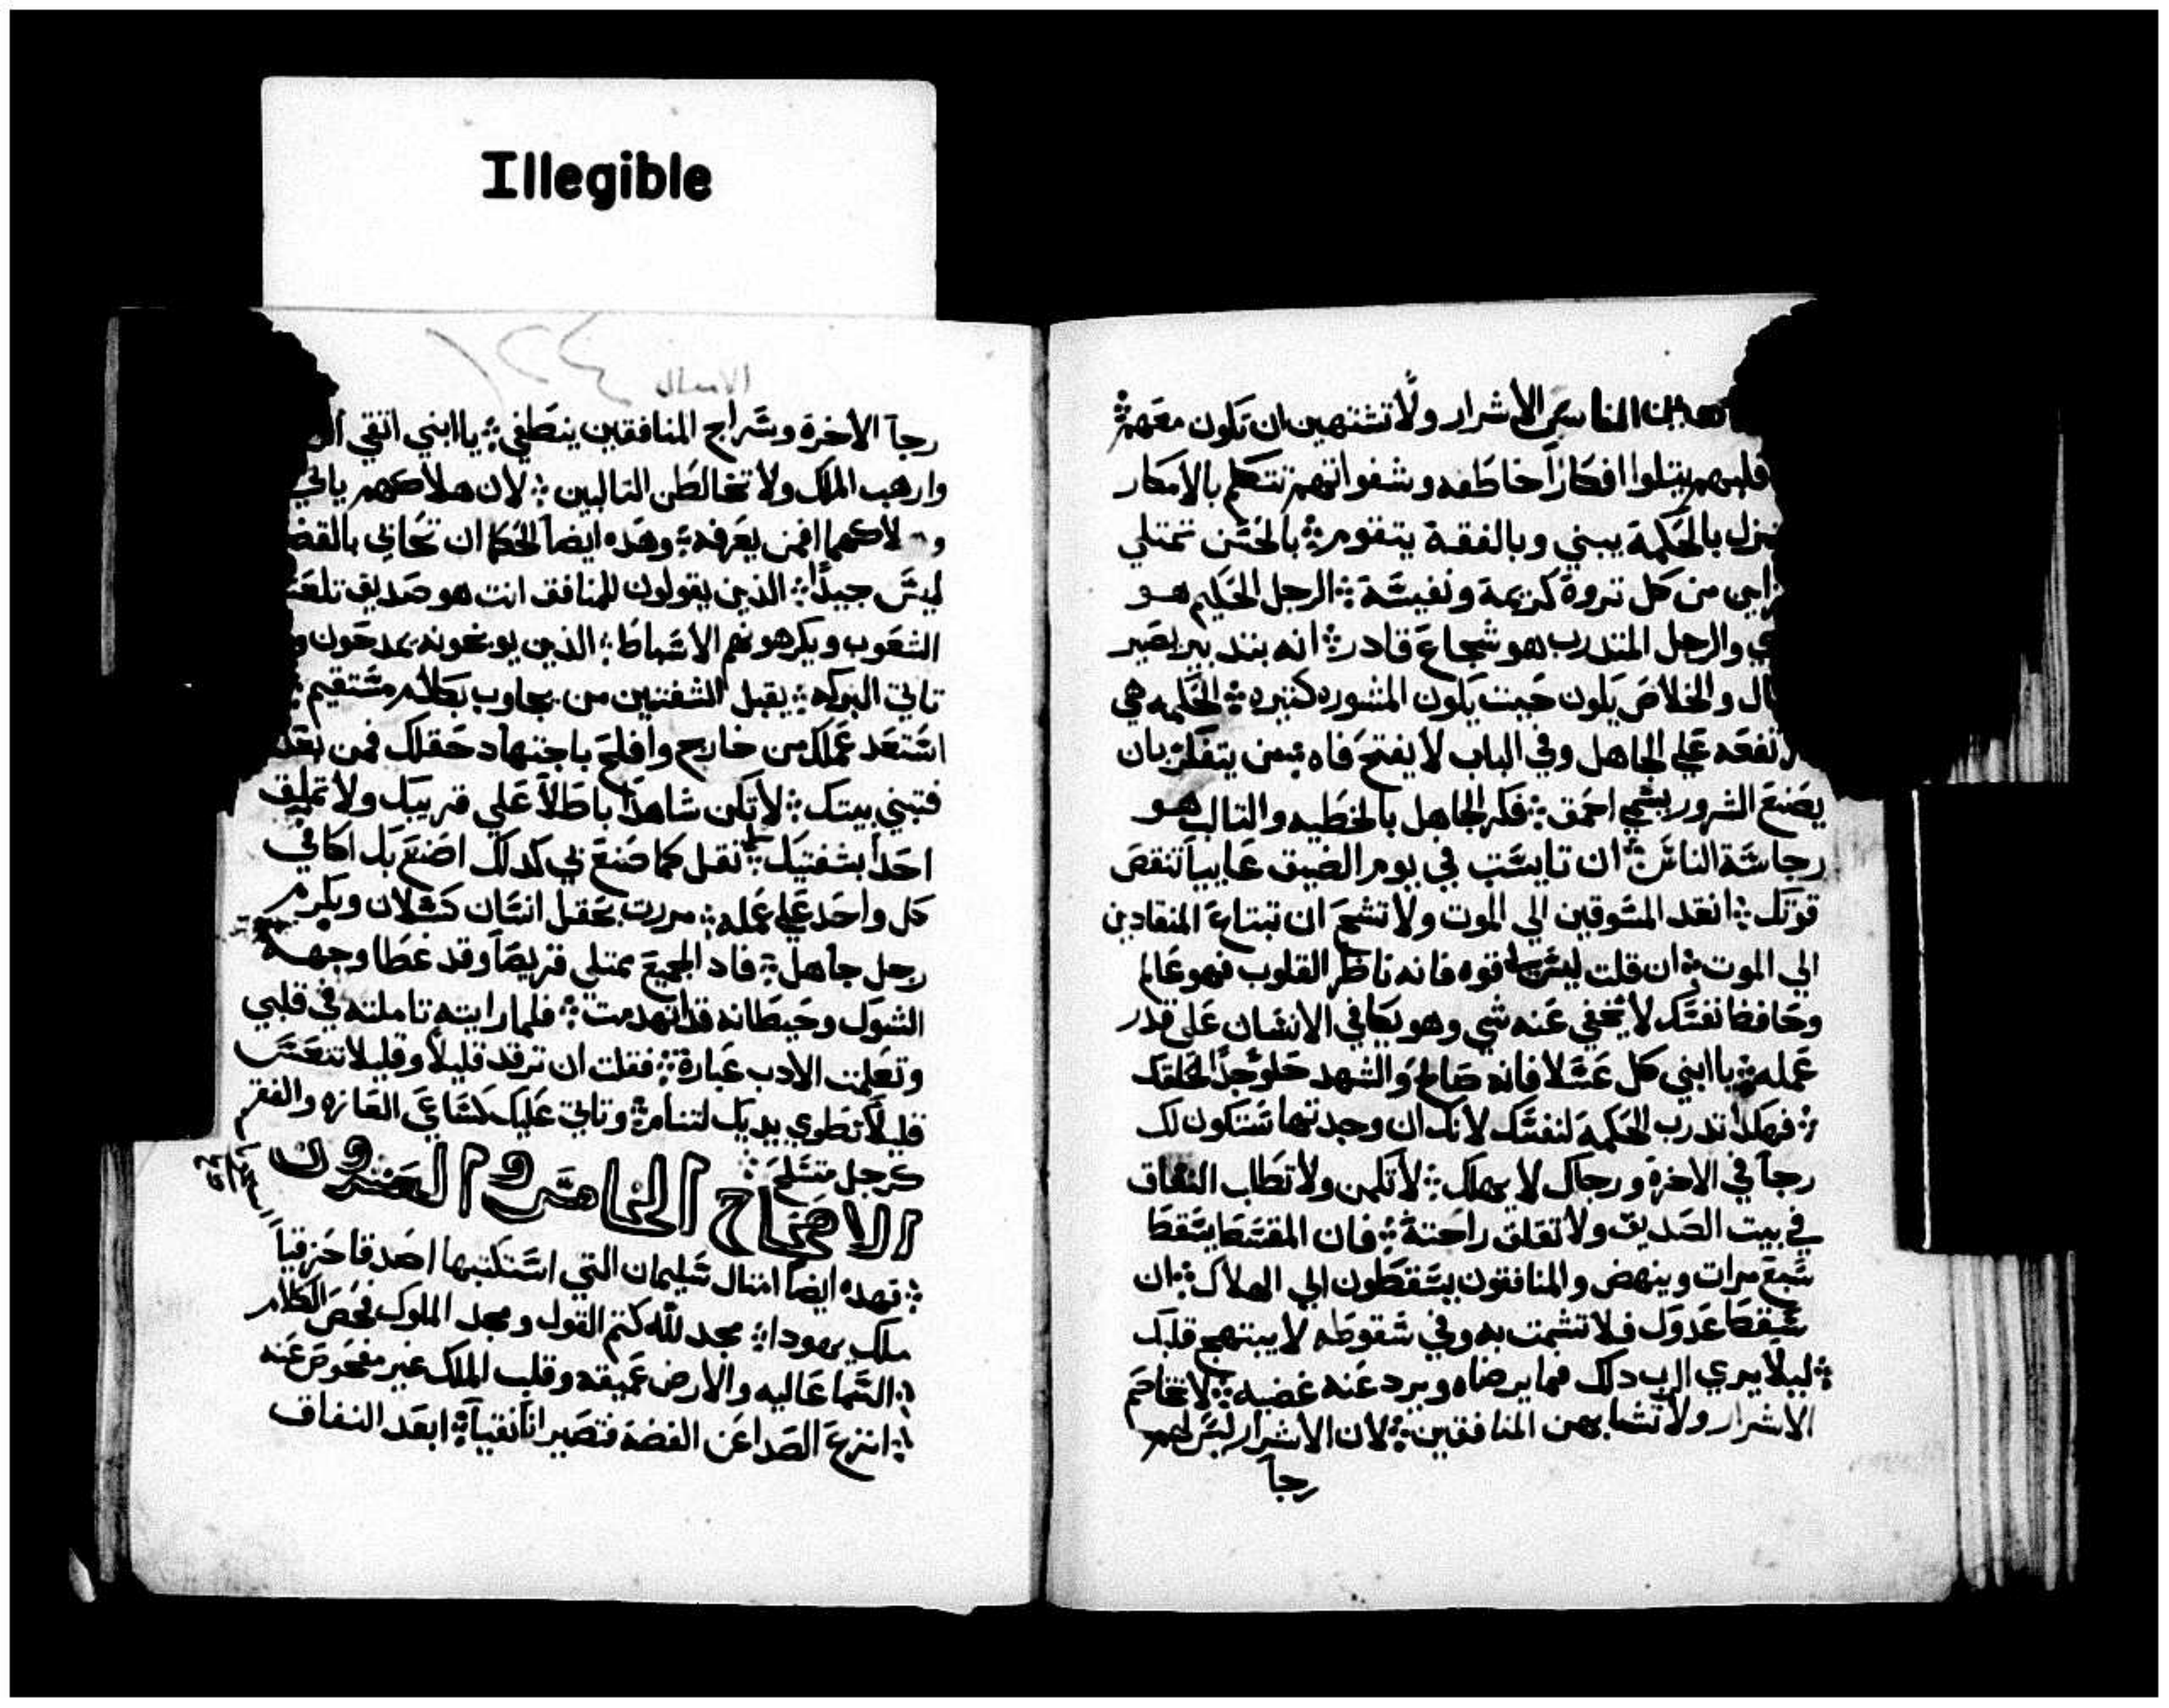 Illegible
الناس الاشرار ولا تشتهين ان تكون معهم
قلبهم يتلوا افكاراً خاطفه وشفواتهم تتكلم بالامكار
بالحكمة يبني وبالفقة يتقوم بالحسن تمتلي
من كل تروة كريمة ونفيسة الرجل الحكيم هو
والرجل المتدرب هو شجاع قادر انه بتدبير يصير
والخلاص يكون حيث يكون المشوره كتيره الحكمه هي
علي الجاهل وفي الباب لا يفتح فاه يتفكر بان
يصنع الشرور يسمي احمق فكر الجاهل بالخطيه والتالب هو
رجاسة الناس ان تايست في يوم الضيق عايياً تنقص
قوتك انقد المسوقين الي الموت ولا تشح ان تبتاع المنقادين
الي الموت ان قلت ليس لي قوه فانه ناظر القلوب فهو عالم
وحافظ نفسك لا يخفي عنه شي وهو يكافي الانسان علي قدر
عمله يا ابني كل عسلا فانه صالح والشهد حلو جداً لحلقك
فهكدا تدرب الحكمة لنفسك لانك ان وجدتها ستكون لك
رجاً في الاخرة ورجاك لا يهلك لا تكمن ولا تطلب النفاق
في بيت الصديق ولا تقلق راحته فان المقسط يسقط
سبع مرات وينهض والمنافقون يسقطون الي الهلاك ان
سقط عدوك فلا تشمت به وفي سقوطه لا يبتهج قلبك
ليلا يري الرب دلك فما يرضاه ويرد عنه غضبه لا تخاصم
الاشرار ولا تشابهن المنافقين لان الاشرار ليس لهم
رجا
الامتال
١٢٤
رجاً الاخرة وسراج المنافقين ينطفي يا ابني اتقي
وارهب الملك ولا تخالطن التالبين لان هلاكهم ياتي
يعرفه وهده ايضاً للحكما ان تحابي بالقض
ليس جيداً الذين يقولون للمنافق انت هو صديق تلعن
الشعوب ويكرهونهم الاسباط الذين يوبخونه يمدحون
تاتي البركه يقبل الشفتين من يجاوب بكلام مستقيم
استعد عملك من خارج وافلح باجتهاد حقلك فمن بعد
فتبني بيتك لا تكن شاهداً باطلاً علي قريبك ولا تمليق
احداً بشفتيك لا تقل كما صنع لي كدلك اصنع بل اكافي
كل واحد علي عمله مررت بحقل انسان كسلان وبكرم
رجل جاهل فاد الجميع ممتلي قريصاً وقد غطا وجهه
الشوك وحيطانه قد انهدمت فلما رايته تاملته في قلبي
وتعلمت الادب عبارة فقلت ان ترقد قليلاً وقليلا تنعس
قليلاً تطوي يديك لتنام وتاتي عليك كساعي الفازه والفقر
كرجل متسلح
الاصحاح الخامس والعشرون
فهده ايضاً امتال سليمان التي استكتبها اصدقا حزقيا
ملك يهودا مجد لله كتم القول ومجد الملوك فحص الكلام
السما عاليه والارض عميقه وقلب الملك غير مفحوص عنه
انزع الصدا عن الفضة فتصير اناً نقياً ابعد النفاق